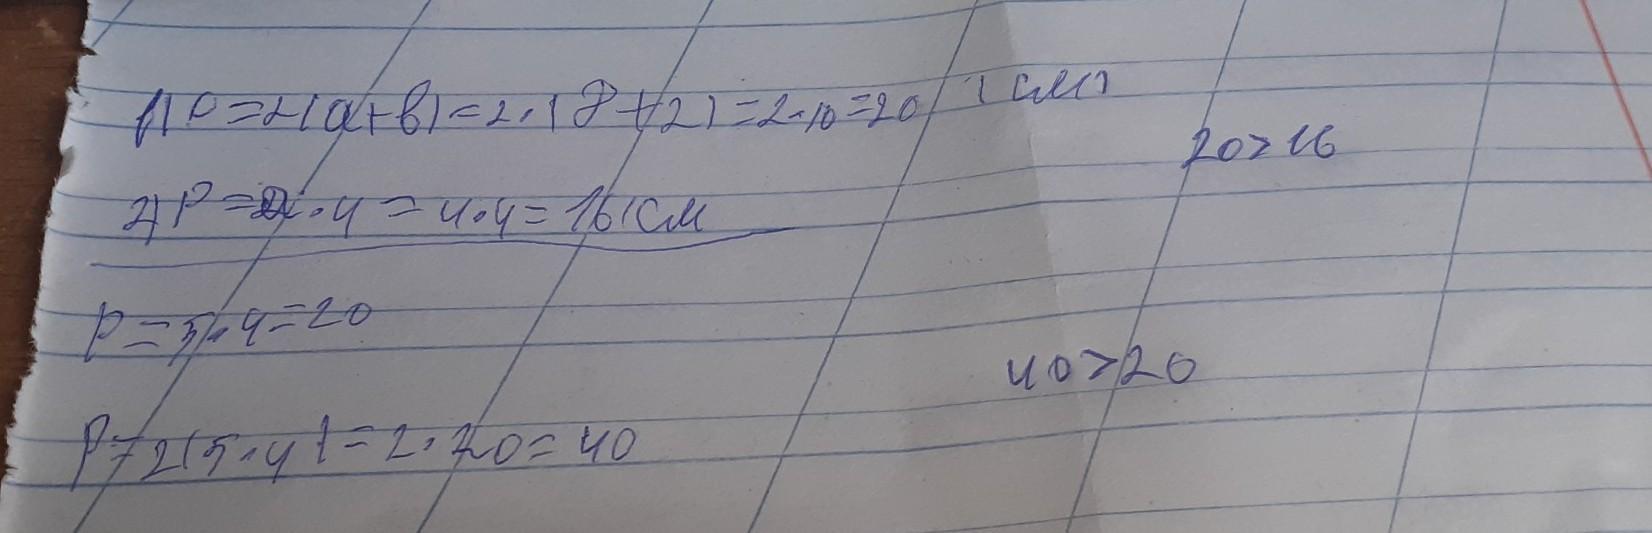 1) P=2(a+b)=2·(8+2)=2·10=20 (см)
20>16
2) P=a·4=4·4=16(см
P=5·4=20
40>20
P=2(5·4)=2·20=40